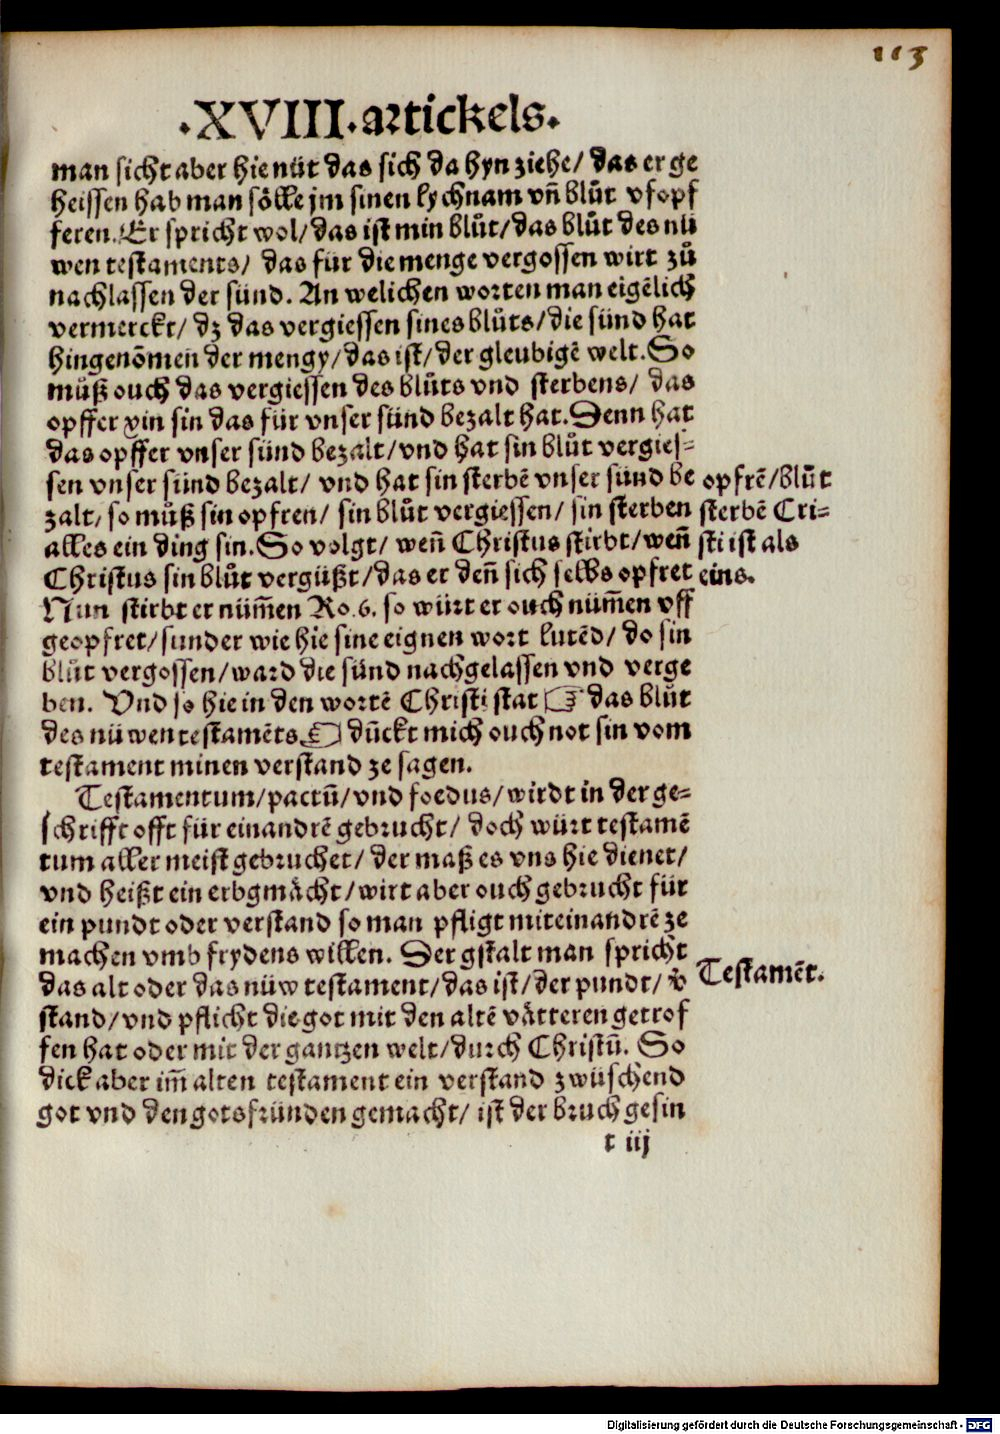 113
·XVIII·artickels·
man sicht aber hie nüt das sich da hyn ziehe/ das er ge
heissen hab man sölle jm sinen lychnam vñ blůt vfopf
feren. Er spricht wol/ das ist min blůt/ das blůt des nü
wen testaments/ das für die menge vergossen wirt zů
nachlassen der sünd. An welichen worten man eigẽlich
vermerckt/ dz das vergiessen sines blůts/ die sünd hat
hingenõmen der mengy/ das ist/ der gleubigẽ welt. So
můß ouch das vergiessen des blůts vnd sterbens/ das
opffer yin sin das für vnser sünd bezalt hat. Denn hat
das opffer vnser sünd bezalt/ vnd hat sin blůt vergies-
sen vnser sünd bezalt/ vnd hat sin sterbẽ vnser sünd be
zalt, so můß sin opfren/ sin blůt vergiessen/ sin sterben
alles ein ding sin. So volgt/ weñ Christus stirbt/ weñ
Christus sin blůt vergüßt/ das er deñ sich selbs opfret
opfrẽ/ blůt
sterbẽ Cri-
sti ist als
eins.
Nun stirbt er nüm̃en Ro. 6. so würt er ouch nüm̃en vff
geopfret/ sunder wie hie sine eignen wort lutẽd/ do sin
blůt vergossen/ ward die sünd nachgelassen vnd verge
ben. Vnd so hie in den wortẽ Christi stat ☞ das blůt
des nüwen testamẽts ☜ dũckt mich ouch not sin vom
testament minen verstand ze sagen.
Testamentum/ pactũ/ vnd foedus/ wirdt in der ge-
schrifft offt für einandrẽ gebrucht/ doch würt testamẽ
tum aller meist gebruchet/ der maß es vns hie dienet/
vnd heißt ein erbgmächt/ wirt aber ouch gebrucht für
ein pundt oder verstand so man pfligt miteinandrẽ ze
machen vmb frydens willen. Der gstalt man spricht
das alt oder das nüw testament/ das ist/ der pundt/ v̊
Testamẽt.
stand/ vnd pflicht die got mit den altẽ vätteren getrof
fen hat oder mit der gantzen welt/ durch Christũ. So
dick aber im̃ alten testament ein verstand zwüschend
got vnd den gotsfründen gemacht/ ist der bruch gesin
t iij
Digitalisierung gefördert durch die Deutsche Forschungsgemeinschaft - DFG